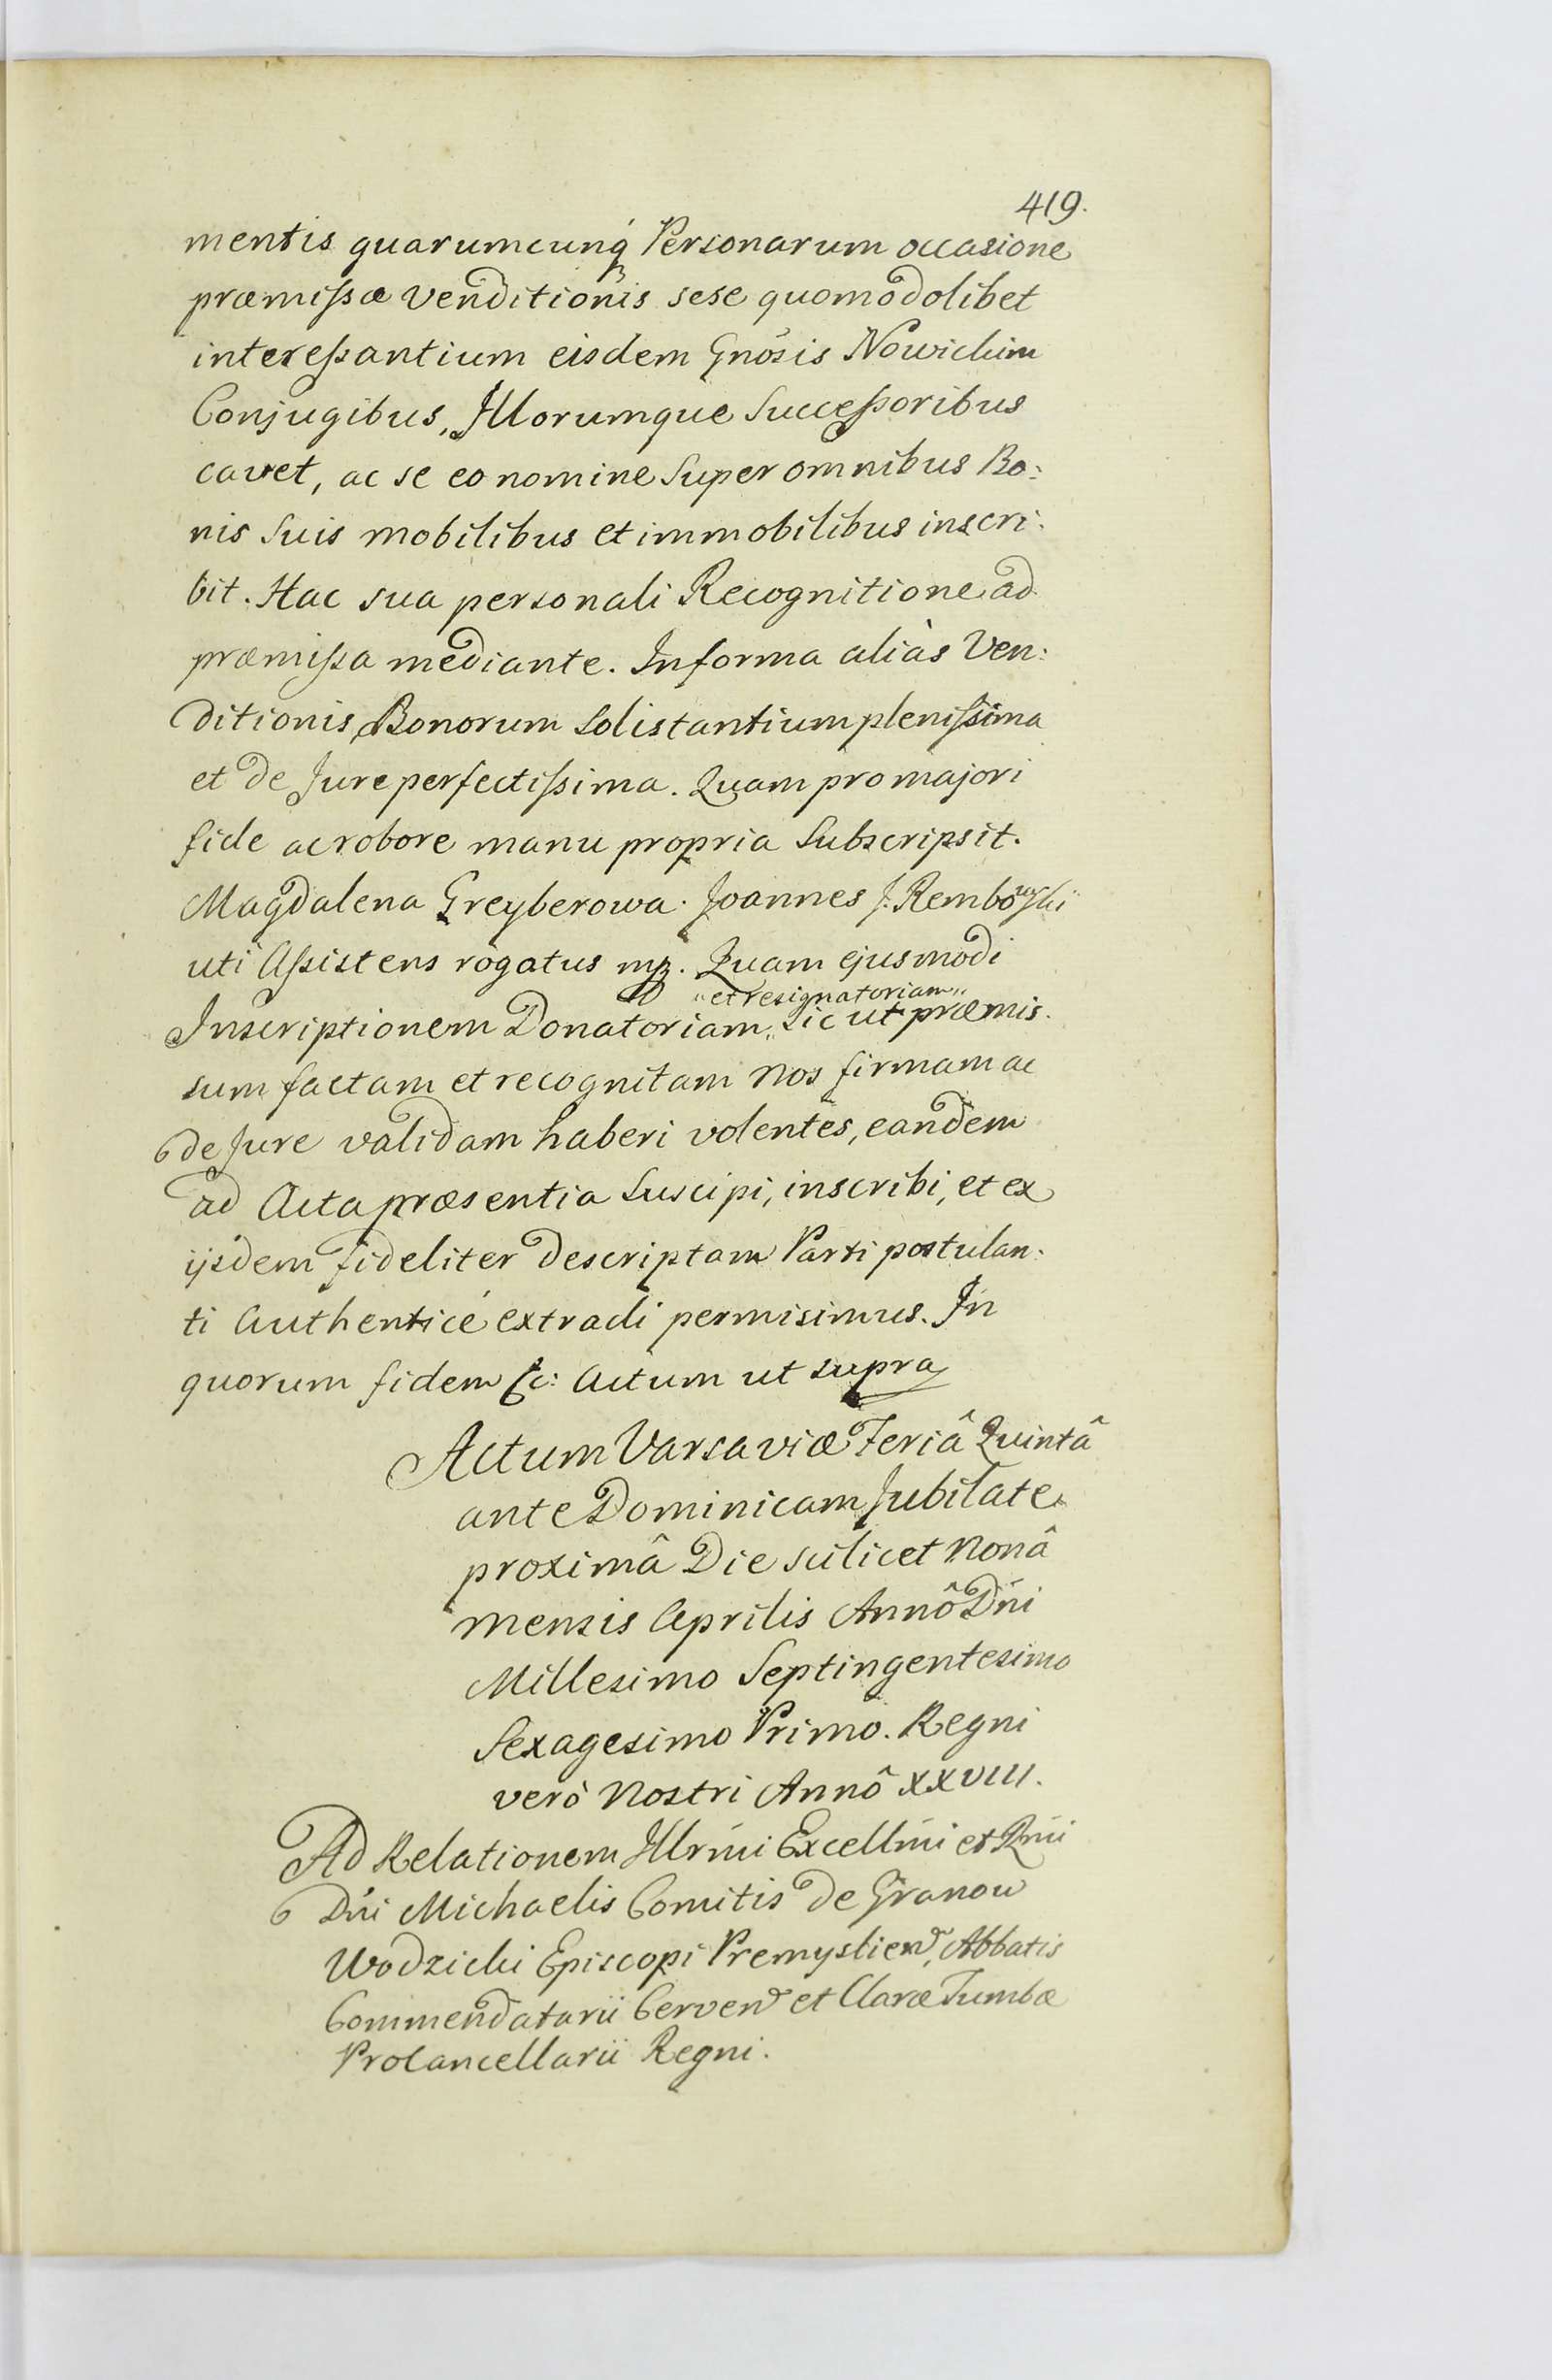 419.
mentis quarumcunq́ Personarum occasione
præmissæ Venditionis sese quomodolibet
interessantium eisdem Gnōsis Nowickim
Conjugibus, Illorumque Successoribus
cavet, ac se eo nomine Super omnibus Bo:
nis Suis mobilibus et immobilibus inscri:
bit. Hac sua personali Recognitione ad
præmissa mediante. In forma aliàs Ven:
ditionis Bonorum Solistantium plenissima
et de Jure perfectissima. Quam pro majori
fide ac robore manu propria Subscripsit.
Magdalena Greyberowa. Joannes J. Rembowski
uti Assistens rogatus mp. Quam ejusmodi
„et resignatoriam„
Inscriptionem Donatoriam„ Sic ut præmis.
sum factam et recognitam Nos firmam ac
de Jure validam haberi volentes, eandem
ad Acta præsentia Suscipi, inscribi, et ex
ijsdem fideliter descriptam Parti postulan.
ti Authenticé extradi permisimus. In
quorum fidem &c: Actum ut supra
Actum Varsaviæ Feriâ Quintâ
ante Dominicam Jubilate
proximâ Die scilicet Nonâ
mensis Aprilis Annô Dńi
Millesimo Septingentesimo
Sexagesimo Primo. Regni
verò Nostri Annô XXVIII.
Ad Relationem Illrmi Excellmi et Rmi
Dńi Michaelis Comitis de Granow
Wodzicki Episcopi Premyslien, Abbatis
Commendatarii Cerven et Claræ Tumbæ
Procancellarii Regni.